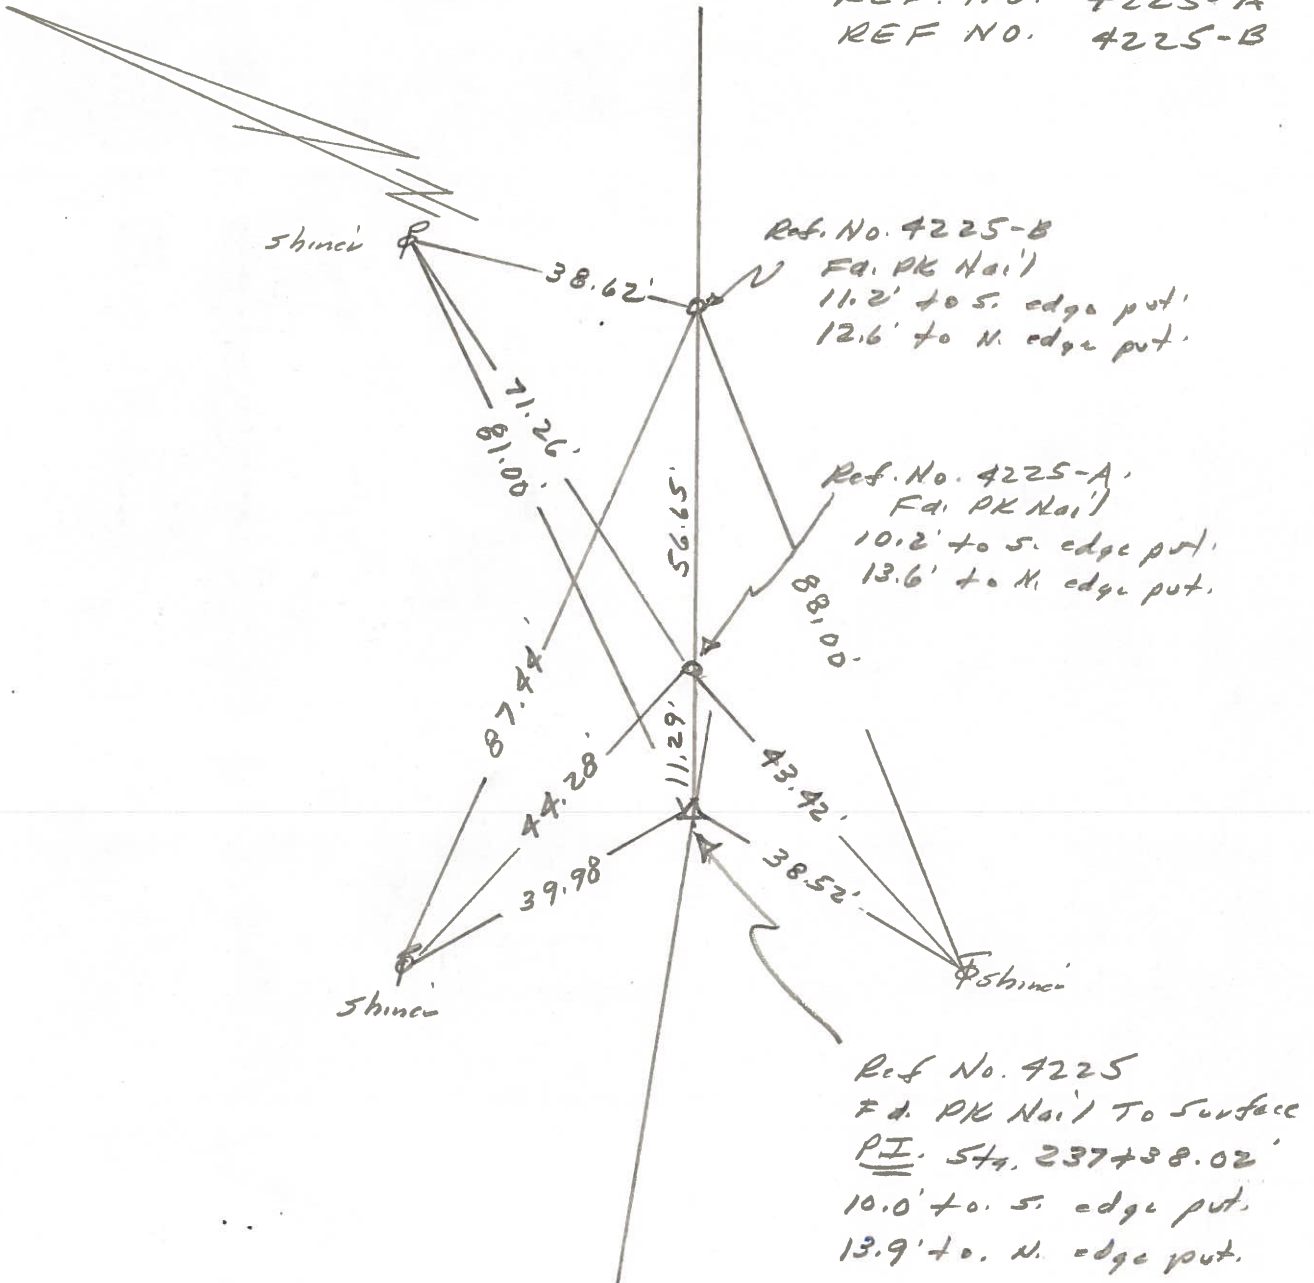 REF. NO. 4225-A
REF NO. 4225-B
shiner
38.62'
Ref. No. 4225-B
Fd. PK Nail
11.2' to S. edge pvt.
12.6' to N. edge pvt.
71.26'
81.00'
56.65'
Ref. No. 4225-A.
Fd. PK Nail
10.2' to S. edge pvt.
13.6' to N. edge pvt.
88.00'
87.44'
44.28'
11.29'
43.42'
39.98
38.52'
shiner
shiner
Ref No. 4225
Fd. PK Nail To Surface
PI. Sta. 237+38.02'
10.0' to. S. edge pvt.
13.9' to. N. edge pvt.